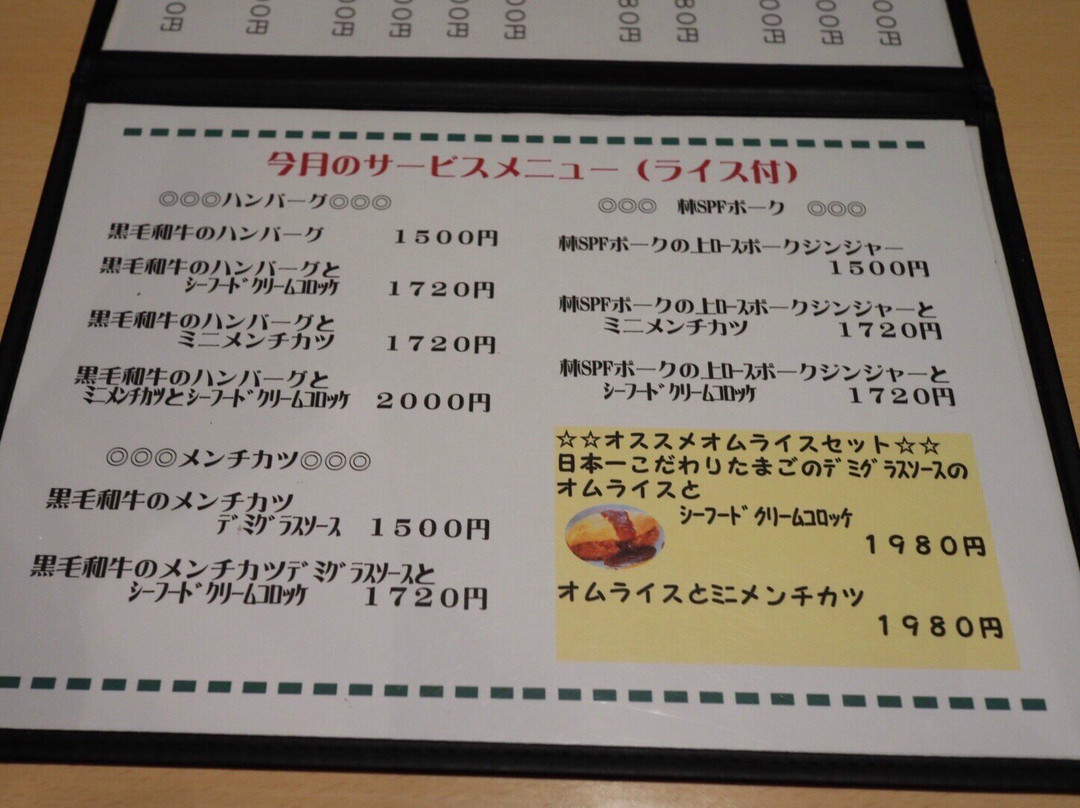 今月のサービスメニュー（ライス付）
◎◎◎ハンバーグ◎◎◎
黒毛和牛のハンバーグ 1500円
黒毛和牛のハンバーグと
シーフードクリームコロッケ 1720円
黒毛和牛のハンバーグと
ミニメンチカツ 1720円
黒毛和牛のハンバーグと
ミニメンチカツとシーフードクリームコロッケ 2000円
◎◎◎メンチカツ◎◎◎
黒毛和牛のメンチカツ
デミグラスソース 1500円
黒毛和牛のメンチカツデミグラスソースと
シーフードクリームコロッケ 1720円
◎◎◎ 林SPFポーク ◎◎◎
林SPFポークの上ロースポークジンジャー
1500円
林SPFポークの上ロースポークジンジャーと
ミニメンチカツ 1720円
林SPFポークの上ロースポークジンジャーと
シーフードクリームコロッケ 1720円
☆☆オススメオムライスセット☆☆
日本一こだわりたまごのデミグラスソースの
オムライスと
シーフードクリームコロッケ
1980円
オムライスとミニメンチカツ
1980円